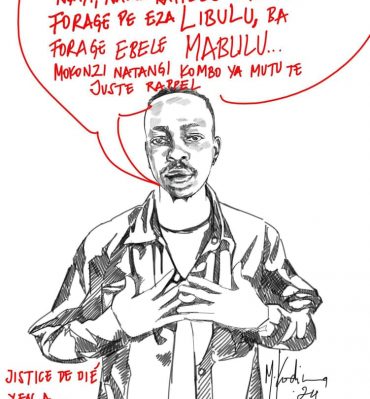 FORAGE PE EZA LIBULU, BA
FORAGE EBELE MABULU...
MOKONZI NATANGI KOMBO YA MUTU TE
JUSTE RAPPEL
JISTICE DE DIÉ